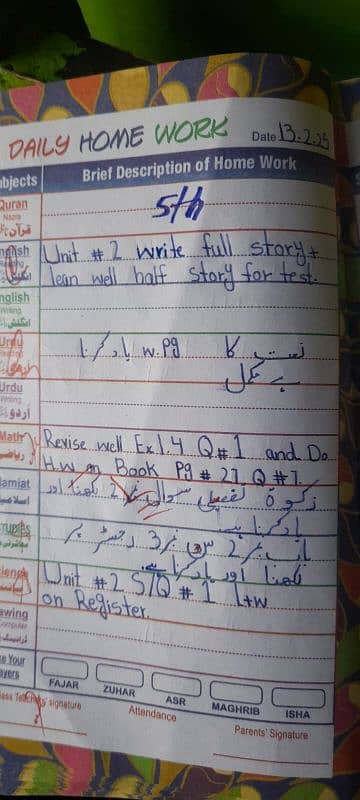 DAILY HOME WORK Date 13.2.25
bjects Brief Description of Home Work
Quran
Nazra
قرآن
5th
nglish Unit # 2 write full story +
lean well half story for test.
nglish
Writing
Urdu نعت کا w.pg یاد کرنا
ہے مکمل
Urdu
Writing
اردو
Math Revise well Ex 1.4 Q#1 and Do
ریاضی H.w on Book Pg # 27, Q #7.
lamiat زکوۃ تفصیلی سوال 2 لکھنا اور
یاد کرنا ہے
باب نمبر 2 س نمبر 3 رجسٹر پر
لکھنا اور یاد کرنا ہے
Unit # 2 S/Q # 1 L+w
on Register.
awing
Computer
ڈرائینگ
e Your
ayers
FAJAR ZUHAR ASR MAGHRIB ISHA
signature Attendance Parents' Signature